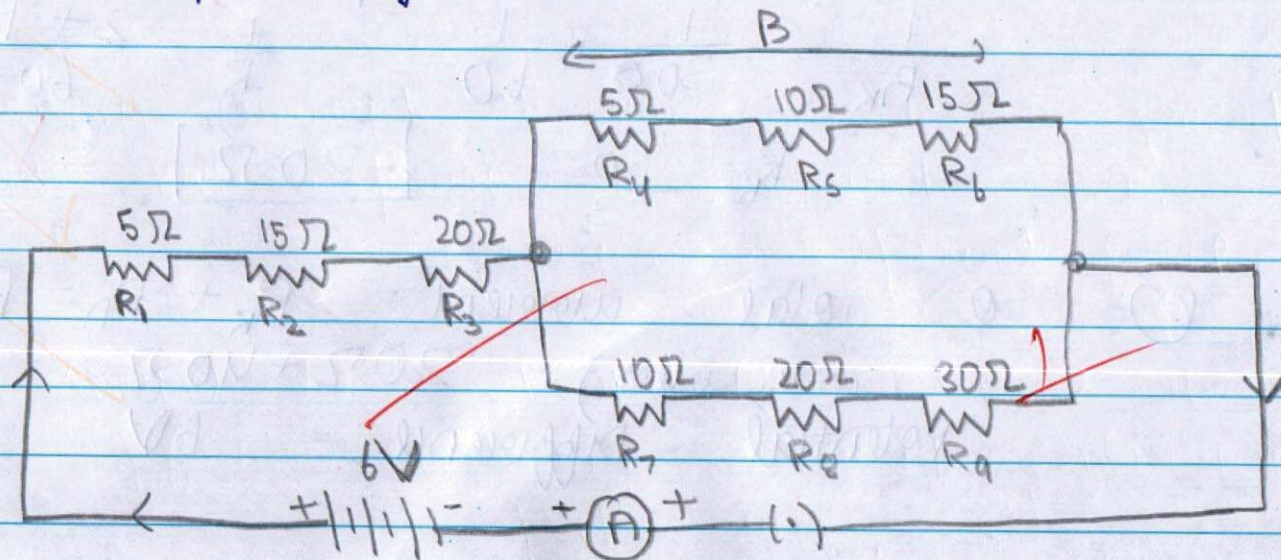 B
5Ω 10Ω 15Ω
R4 R5 R6
5Ω 15Ω 20Ω
R1 R2 R3
10Ω 20Ω 30Ω
R7 R8 R9
6V
+ - + A + (.)